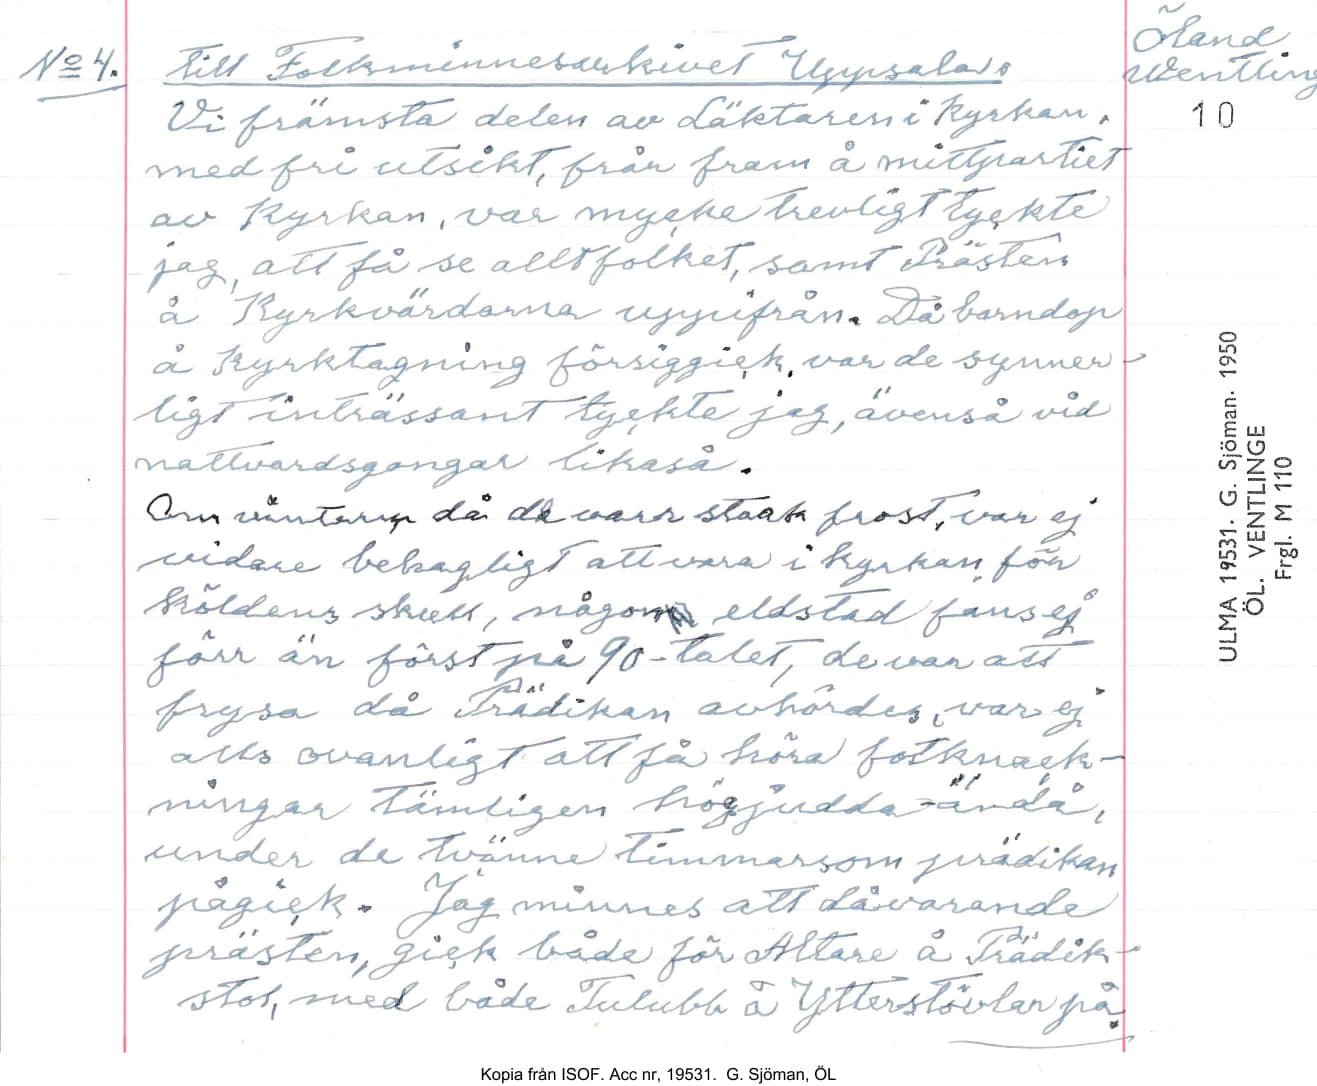 No 4.
till Folkminnesarkivet Uppsala.
Öland
Wentling
10
Vi främsta delen av Läktaren i Kyrkan.
med fri utsikt, från fram å mittpartiet
av Kyrkan, var mycke trevligt tyckte
jag, att få se allt folket, samt Prästen
å Kyrkvärdarna uppifrån. Då barndop
å Kyrktagning försiggick, var de synner-
ligt inträssant tyckte jag, ävenså vid
nattvardsgångar likaså.
Om vintern då de varr stark frost, var ej
vidare behagligt att vara i Kyrkan, för
köldens skull, någon eldstad fans ej
förr än först på 90-talet, de var att
frysa då Prädikan avhördes, var ej
alls ovanligt att få höra fotknäck-
ningar tämligen högjudda-ändå,
under de tvänne timmar som prädikan
pågick. Jag minnes att dåvarande
prästen, gick både för Altare å Prädik-
stol, med både Tulubb å Ytterstövlar på.
ULMA 19531. G. Sjöman. 1950
ÖL. VENTLINGE
Frgl. M 110
Kopia från ISOF. Acc nr, 19531. G. Sjöman, ÖL